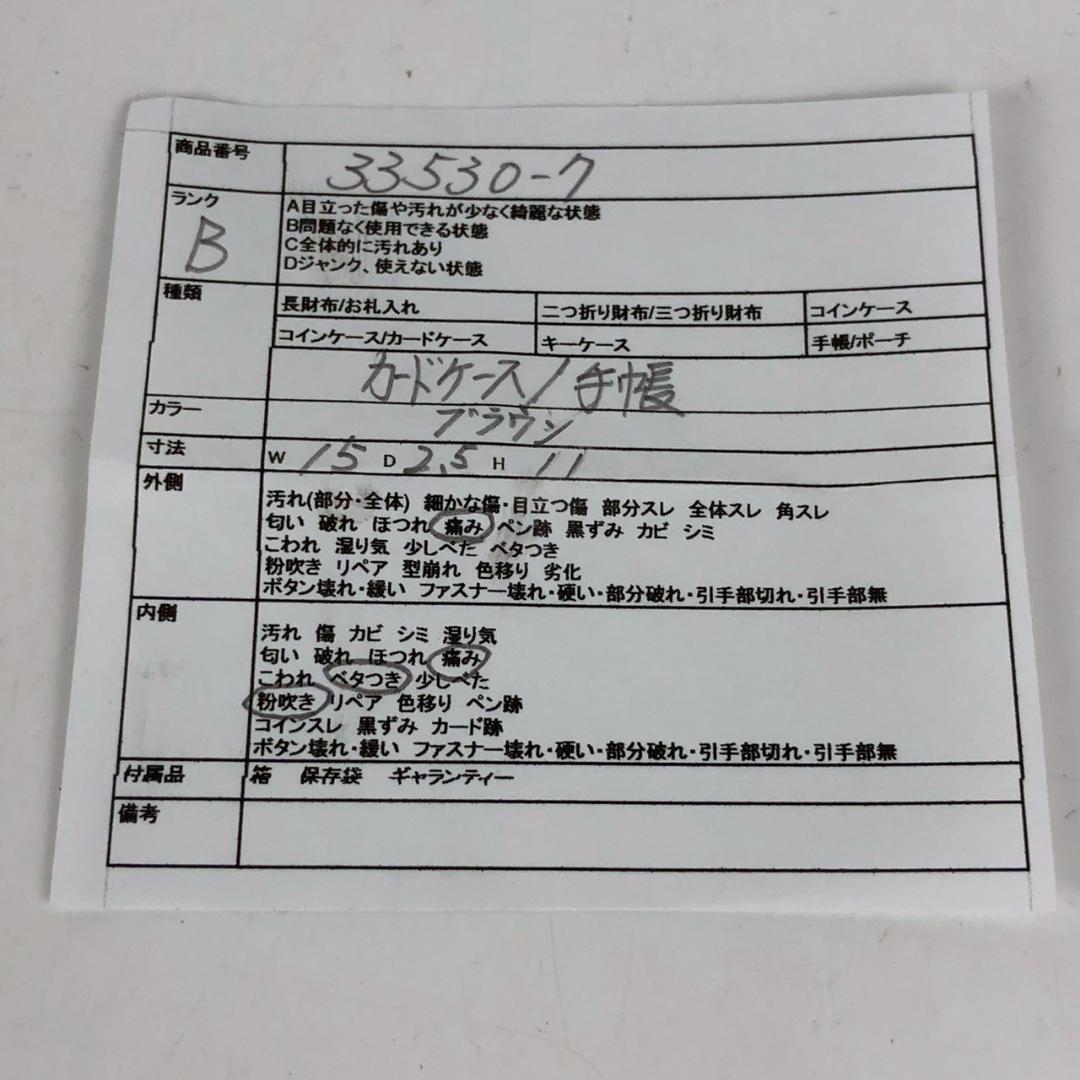 商品番号 33530-7
ランク B
A目立った傷や汚れが少なく綺麗な状態
B問題なく使用できる状態
C全体的に汚れあり
Dジャンク、使えない状態
種類 長財布/お札入れ 二つ折り財布/三つ折り財布 コインケース
コインケース/カードケース キーケース 手帳/ポーチ
カードケース/手帳
カラー ブラウン
寸法 W 15 D 2.5 H 11
外側
汚れ(部分・全体) 細かな傷・目立つ傷 部分スレ 全体スレ 角スレ
匂い 破れ ほつれ 痛み ペン跡 黒ずみ カビ シミ
こわれ 湿り気 少しべた ベタつき
粉吹き リペア 型崩れ 色移り 劣化
ボタン壊れ・緩い ファスナー壊れ・硬い・部分破れ・引手部切れ・引手部無
内側
汚れ 傷 カビ シミ 湿り気
匂い 破れ ほつれ 痛み
こわれ ベタつき 少しべた
粉吹き リペア 色移り ペン跡
コインスレ 黒ずみ カード跡
ボタン壊れ・緩い ファスナー壊れ・硬い・部分破れ・引手部切れ・引手部無
付属品 箱 保存袋 ギャランティー
備考